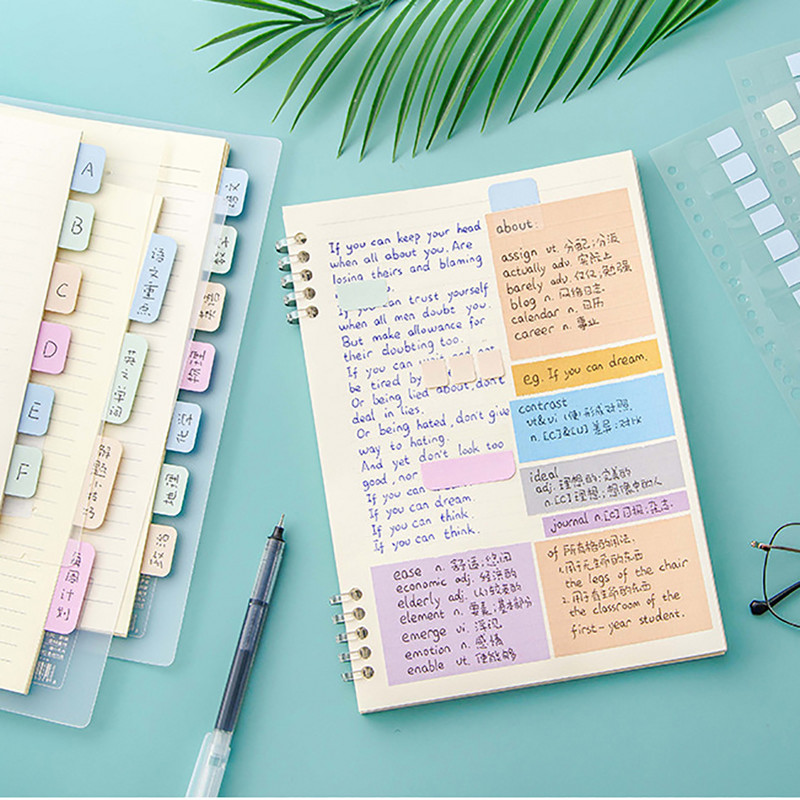 A
B
C
D
E
F
语文重点
解题小技巧
每周计划
语文
数学
英语
物理
化学
地理
政治
If you can keep your head
when all about you. Are
losing theirs and blaming
If you can trust yourself
when all men doubt you.
But make allowance for
their doubting too.
If you can wait and not
be tired by
Or being lied about, don't
deal in lies.
Or being hated, don't give
way to hating.
And yet don't look too
good, nor
If you can
If you can dream.
If you can think.
If you can think.
about:
assign vt. 分配;分派
actually adv. 实际上
barely adv. 仅仅;勉强
blog n. 网络日志
calendar n. 日历
career n. 事业
e.g. If you can dream.
contrast
vt&vi (使)形成对照
n. [C]&[U] 差异;对比
ideal
adj. 理想的;完美的
n. [C] 理想;想像中的人
journal n. [C] 日报;杂志.
ease n. 舒适;悠闲
economic adj. 经济的
elderly adj. (人)较老的
element n. 要素;基本部分
emerge vi. 浮现
emotion n. 感情
enable vt. 使能够
of 所有格的用法.
1. 用于无生命的东西
the legs of the chair
2. 用于有生命的东西
the classroom of the
first-year student.